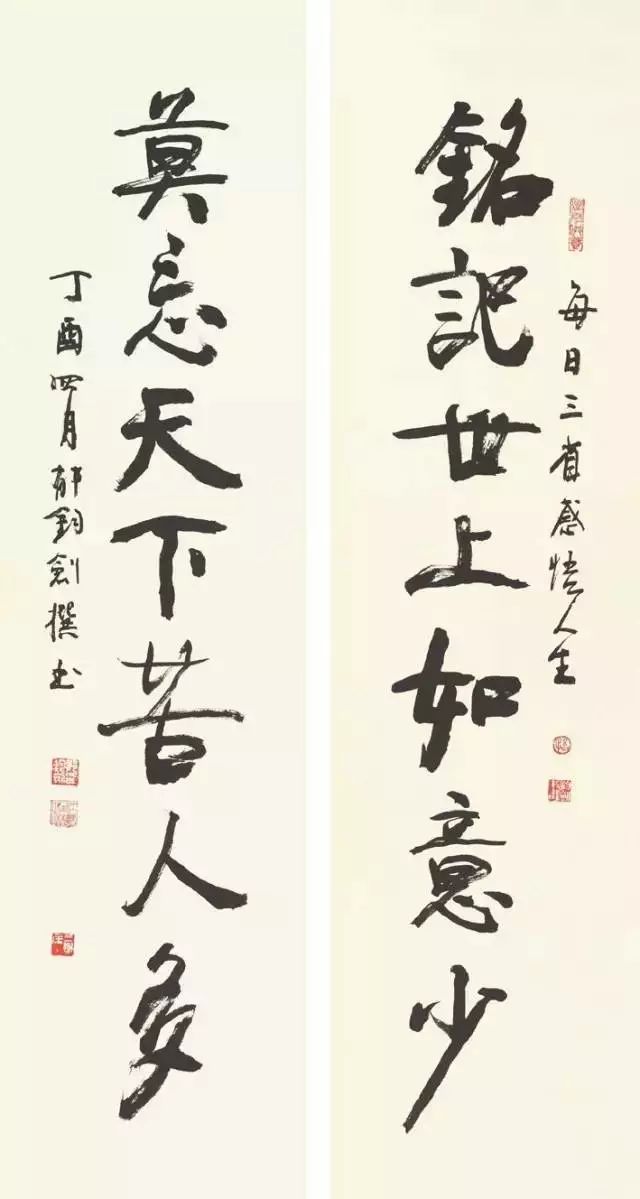 每日三省感悟人生
銘記世上如意少
莫忘天下苦人多
丁酉四月郁钧剑撰书